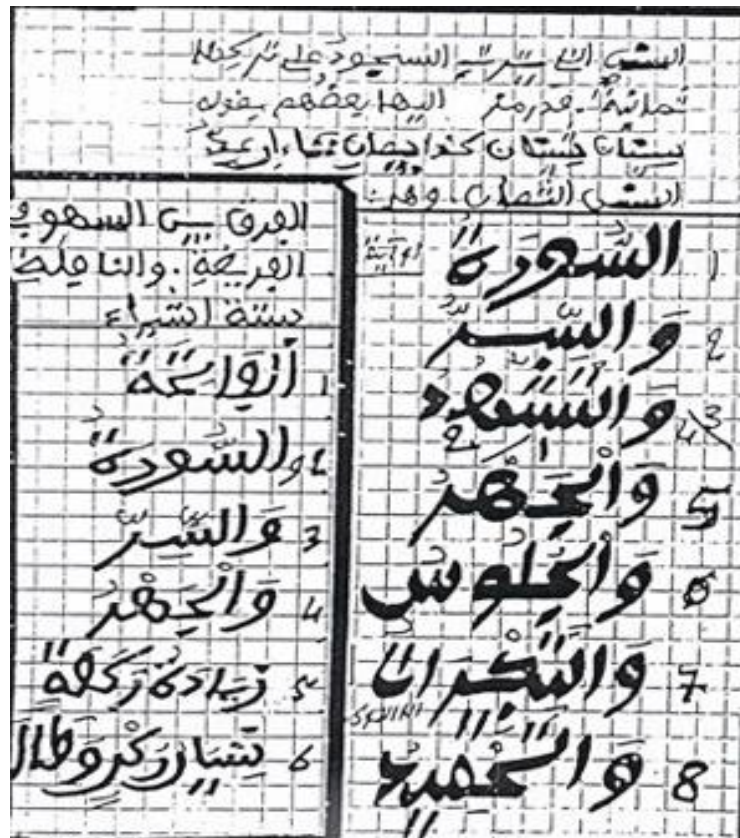 السنن التي يترتب السجود على تركها
ثمانية. قد رمز إليها بعضهم بقوله
سينان شينان كذا جيمان تاءان عدّ
السنن الثمان. وهي:
1 السُّورَةُ
2 وَالسِّرُّ
3 4 وَالتَّشَهُّدُ
1 2
5 وَالْجَهْرُ
6 وَالْجُلُوسُ
7 وَالتَّكْبِرَاتُ
8 وَالتَّحْمِيدُ
الفرق بين السهو في
الفريضة. والنافلة
ستة أشياء
1 الْفَاتِحَةُ
2 والسُّورَةُ
3 وَالسِّرُّ
4 وَالْجَهْرُ
5 زِيَادَةُ رَكْعَةٍ
6 نِسْيَانُ رُكْنٍ وَطَالَ